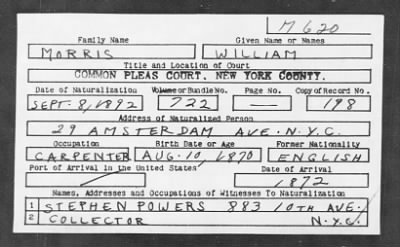 M 620
Family Name Given Name or Names
MORRIS WILLIAM
Title and Location of Court
COMMON PLEAS COURT, NEW YORK COUNTY.
Date of Naturalization Volume or Bundle No. Page No. Copy of Record No.
SEPT. 8, 1892 722 — 198
Address of Naturalized Person
29 AMSTERDAM AVE. N.Y.C.
Occupation Birth Date or Age Former Nationality
CARPENTER AUG. 10, 1870 ENGLISH
Port of Arrival in the United States Date of Arrival
1872
Names, Addresses and Occupations of Witnesses To Naturalization
1 STEPHEN POWERS 883 10TH AVE.
2 COLLECTOR N.Y.C.